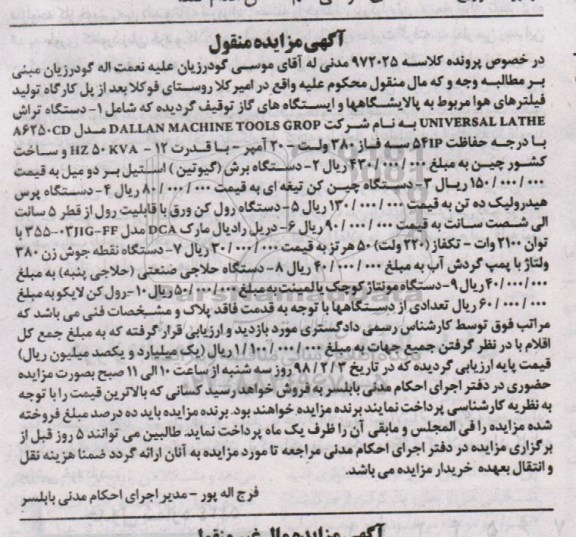 آگهی مزایده منقول
در خصوص پرونده کلاسه ۹۷۲۰۲۵ مدنی له آقای موسی گودرزیان علیه نعمت اله گودرزیان مبنی
بر مطالبه وجه و که مال منقول محکوم علیه واقع در امیرکلا روستای فوکلا بعد از پل کارگاه تولید
فیلترهای هوا مربوط به پالایشگاهها و ایستگاه های گاز توقیف گردیده که شامل ۱- دستگاه تراش
UNIVERSAL LATHE به نام شرکت DALLAN MACHINE TOOLS GROP مدل A۶۲۵۰CD
با درجه حفاظت ۵۴IP سه فاز ۳۸۰ ولت - ۲۰ آمپر - با قدرت ۱۲ - HZ ۵۰ KVA و ساخت
کشور چین به مبلغ ۴۳۰/۰۰۰/۰۰۰ ریال ۲- دستگاه برش (گیوتین) استیل بر دو میل به قیمت
۱۵۰/۰۰۰/۰۰۰ ریال ۳- دستگاه چین کن تیغه ای به قیمت ۸۰/۰۰۰/۰۰۰ ریال ۴- دستگاه پرس
هیدرولیک ده تن به قیمت ۱۳۰/۰۰۰/۰۰۰ ریال ۵- دستگاه رول کن ورق با قابلیت رول از قطر ۵ سانت
الی شصت سانت به قیمت ۹۰/۰۰۰/۰۰۰ ریال ۶- دریل رادیال مارک DCA مدل ۰۳JIG-FF-۳۵۵ با
توان ۲۱۰۰ وات - تکفاز (۲۲۰ ولت) ۵۰ هرتز به قیمت ۲۰/۰۰۰/۰۰۰ ریال ۷- دستگاه نقطه جوش زن ۳۸۰
ولتاژ با پمپ گردش آب به مبلغ ۴۰/۰۰۰/۰۰۰ ریال ۸- دستگاه حلاجی صنعتی (حلاجی پنبه) به مبلغ
۴۰/۰۰۰/۰۰۰ ریال ۹- دستگاه مونتاژ کوچک پالمینت به مبلغ ۵۰/۰۰۰/۰۰۰ ریال ۱۰- رول کن لایکو به مبلغ
۶۰/۰۰۰/۰۰۰ ریال تعدادی از دستگاهها با توجه به قدمت فاقد پلاک و مشخصات فنی می باشد که
مراتب فوق توسط کارشناس رسمی دادگستری مورد بازدید و ارزیابی قرار گرفته که به مبلغ جمع کل
اقلام با در نظر گرفتن جمیع جهات به مبلغ ۱/۱۰۰/۰۰۰/۰۰۰ ریال (یک میلیارد و یکصد میلیون ریال)
قیمت پایه ارزیابی گردیده که در تاریخ ۹۸/۲/۳ روز سه شنبه از ساعت ۱۰ الی ۱۱ صبح بصورت مزایده
حضوری در دفتر اجرای احکام مدنی بابلسر به فروش خواهد رسید کسانی که بالاترین قیمت را با توجه
به نظریه کارشناسی پرداخت نمایند برنده مزایده خواهند بود. برنده مزایده باید ده درصد مبلغ فروخته
شده مزایده را فی المجلس و مابقی آن را ظرف یک ماه پرداخت نماید. طالبین می توانند ۵ روز قبل از
برگزاری مزایده در دفتر اجرای احکام مدنی مراجعه تا مورد مزایده به آنان ارائه گردد ضمنا هزینه نقل
و انتقال بعهده خریدار مزایده می باشد.
فرج اله پور - مدیر اجرای احکام مدنی بابلسر
آگهی مزایده مال غیر منقول